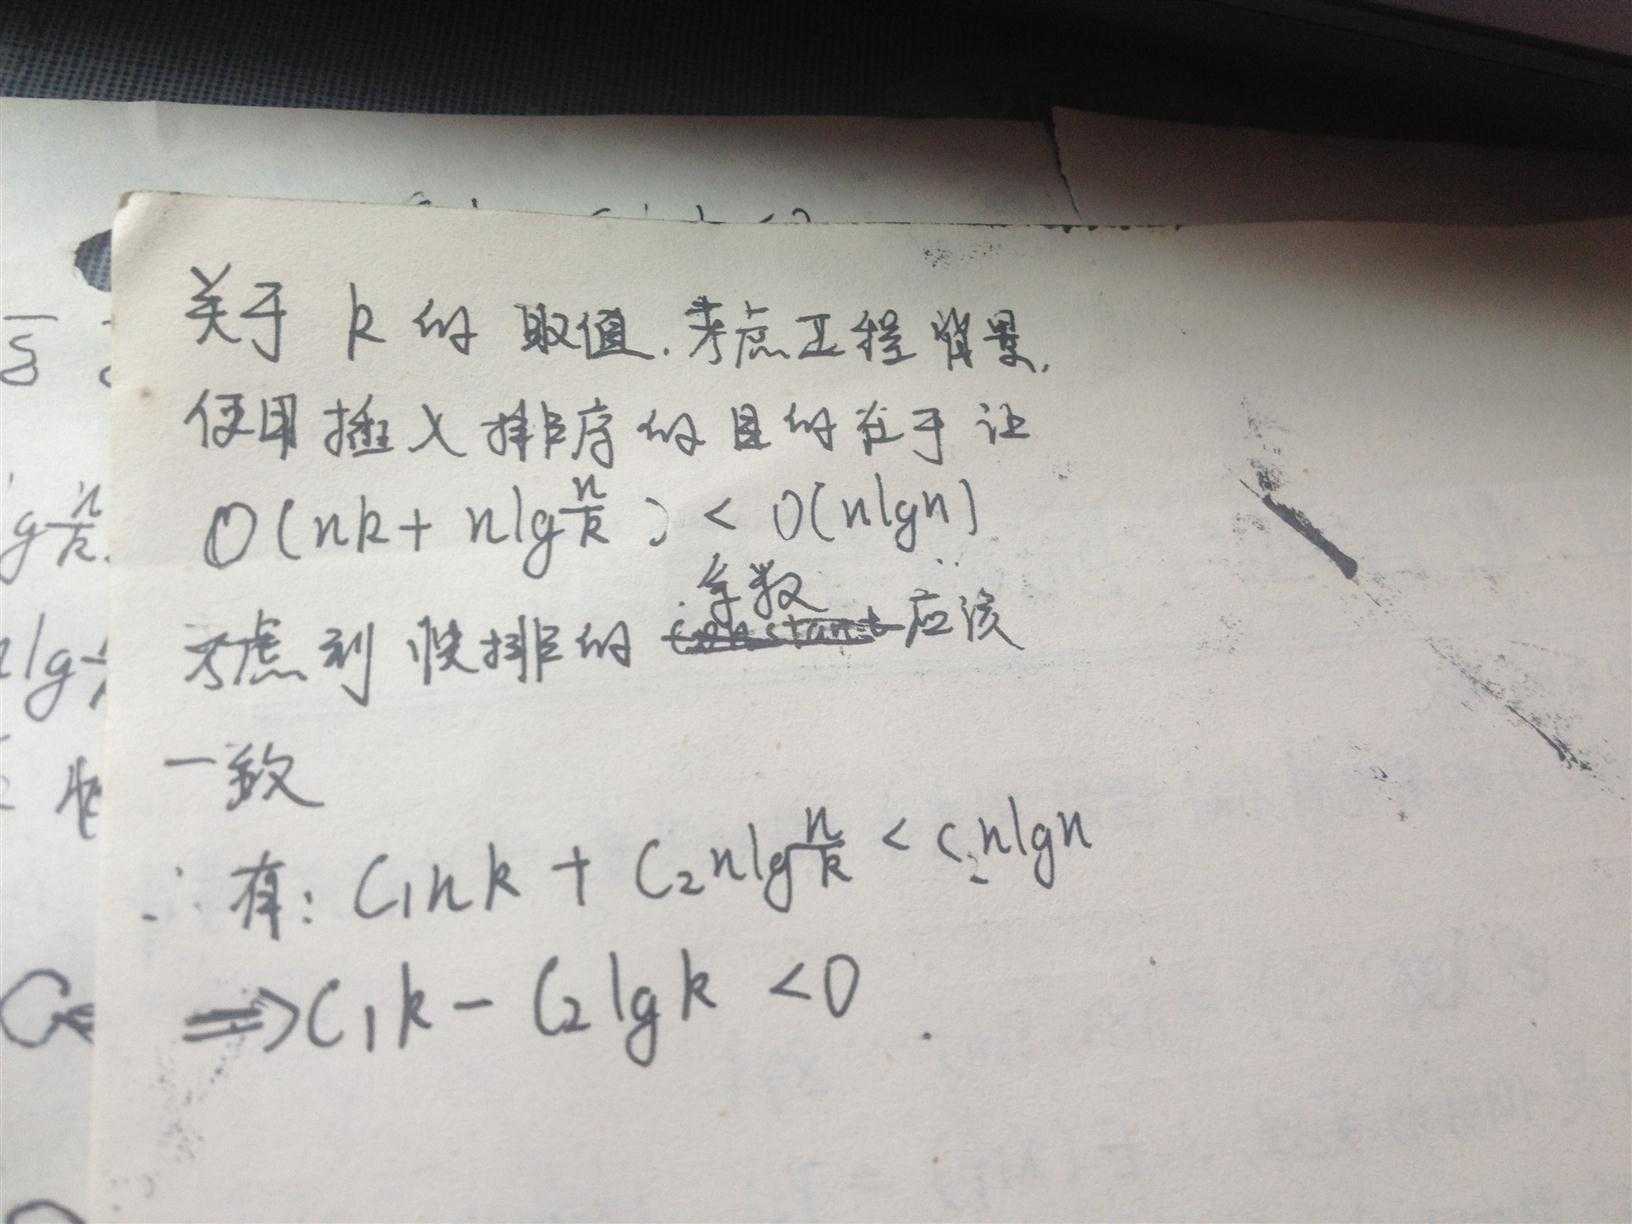 关于 k 的 取值. 考虑工程背景.
使用 插入排序的目的在于让
O(nk + nlg n/k) < O(nlgn)
考虑到 快排的 系数 应该
一致
∴ 有: C₁nk + C₂nlg n/k < C₂nlgn
⟹ C₁k - C₂lgk < 0